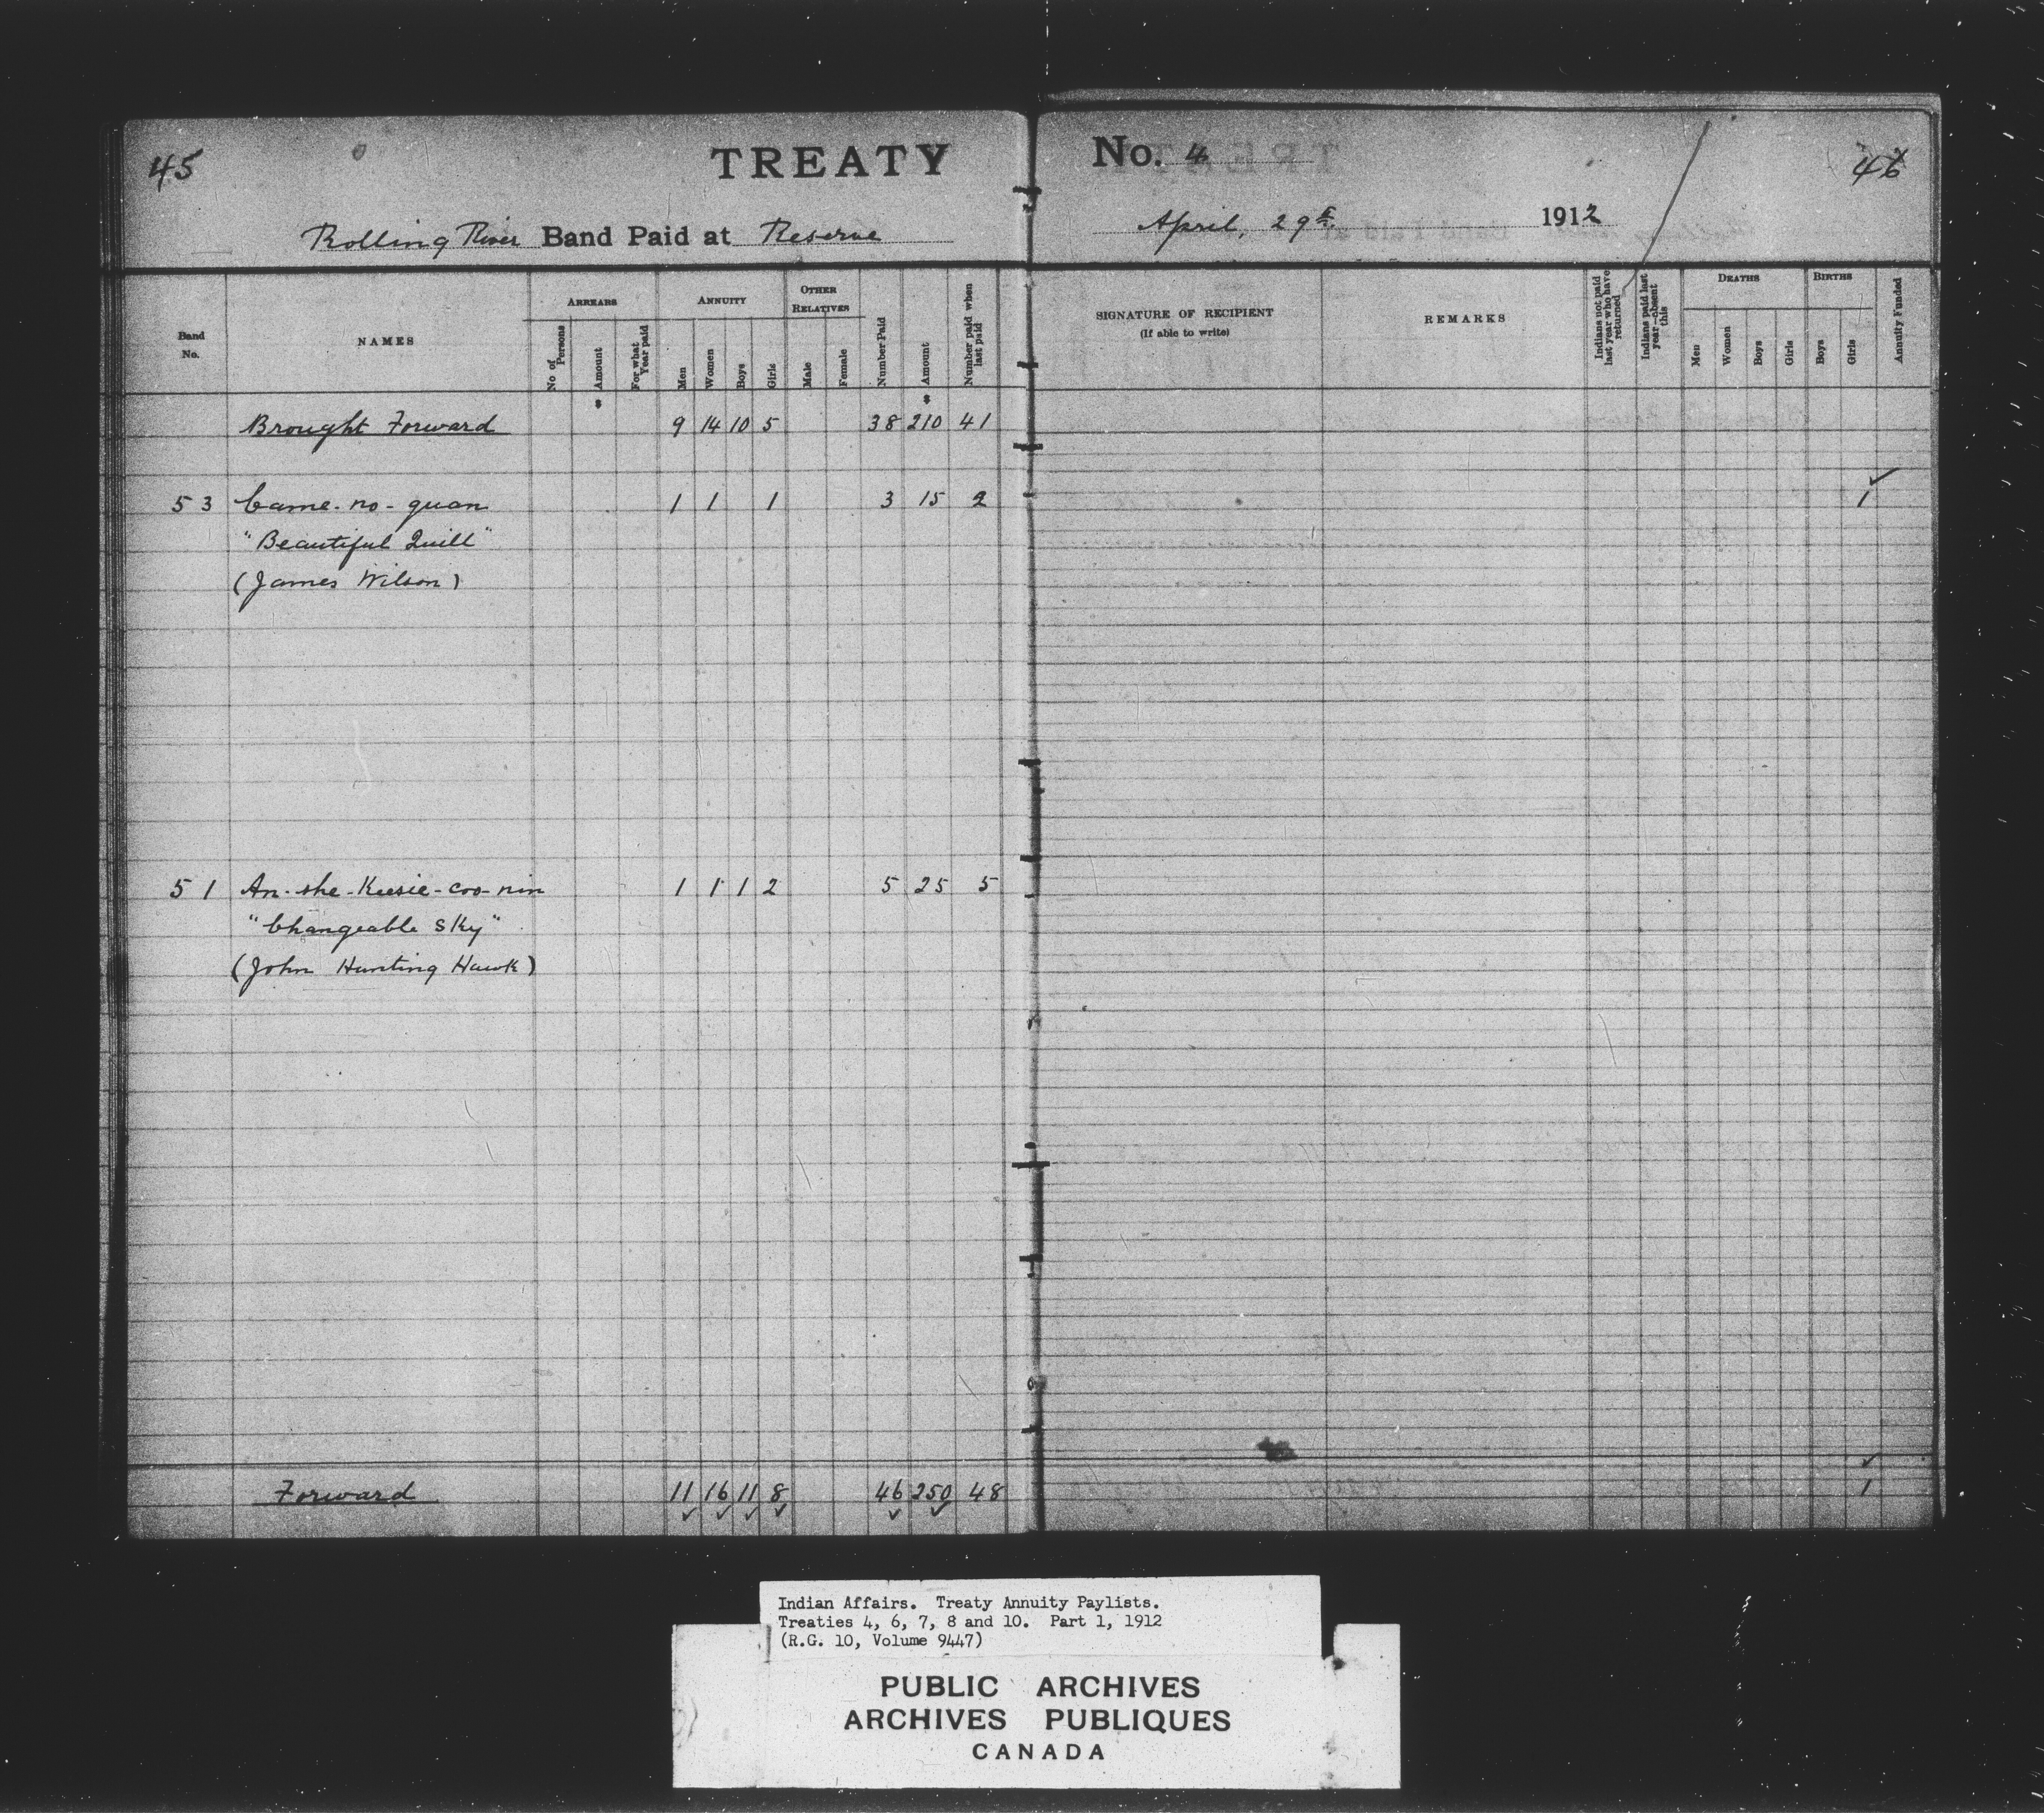 45
TREATY
No. 4
46
Rolling River Band Paid at Reserve
April, 29th 1912
Band No.
NAMES
ARREARS
No of Persons
Amount
For what Year paid
ANNUITY
Men
Women
Boys
Girls
OTHER RELATIVES
Male
Female
Number Paid
Amount
Number paid when last paid
SIGNATURE OF RECIPIENT
(If able to write)
REMARKS
Indians not paid last year who have returned
Indians paid last year—absent this
DEATHS
Men
Women
Boys
Girls
BIRTHS
Boys
Girls
Annuity Funded
$ $
Brought Forward 9 14 10 5 38 210 41
53 Came-no-quan 1 1 1 3 15 2 1
"Beautiful Quill"
(James Wilson)
51 An-she-Keesie-coo-nin 1 1 1 2 5 25 5
"Changeable Sky"
(John Hunting Hawk)
Forward 11 16 11 8 46 250 48 1
Indian Affairs. Treaty Annuity Paylists.
Treaties 4, 6, 7, 8 and 10. Part 1, 1912
(R.G. 10, Volume 9447)
PUBLIC ARCHIVES
ARCHIVES PUBLIQUES
CANADA